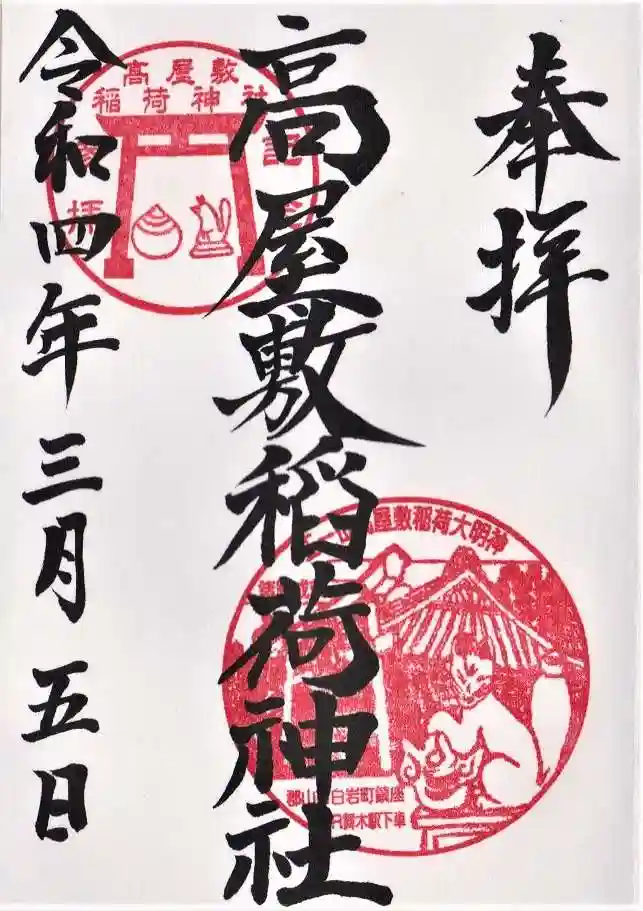 奉拝
高屋敷稲荷神社
令和四年三月五日
高屋敷
稲荷神社
屋敷稲荷大明神
白岩町鎮座
木駅下車